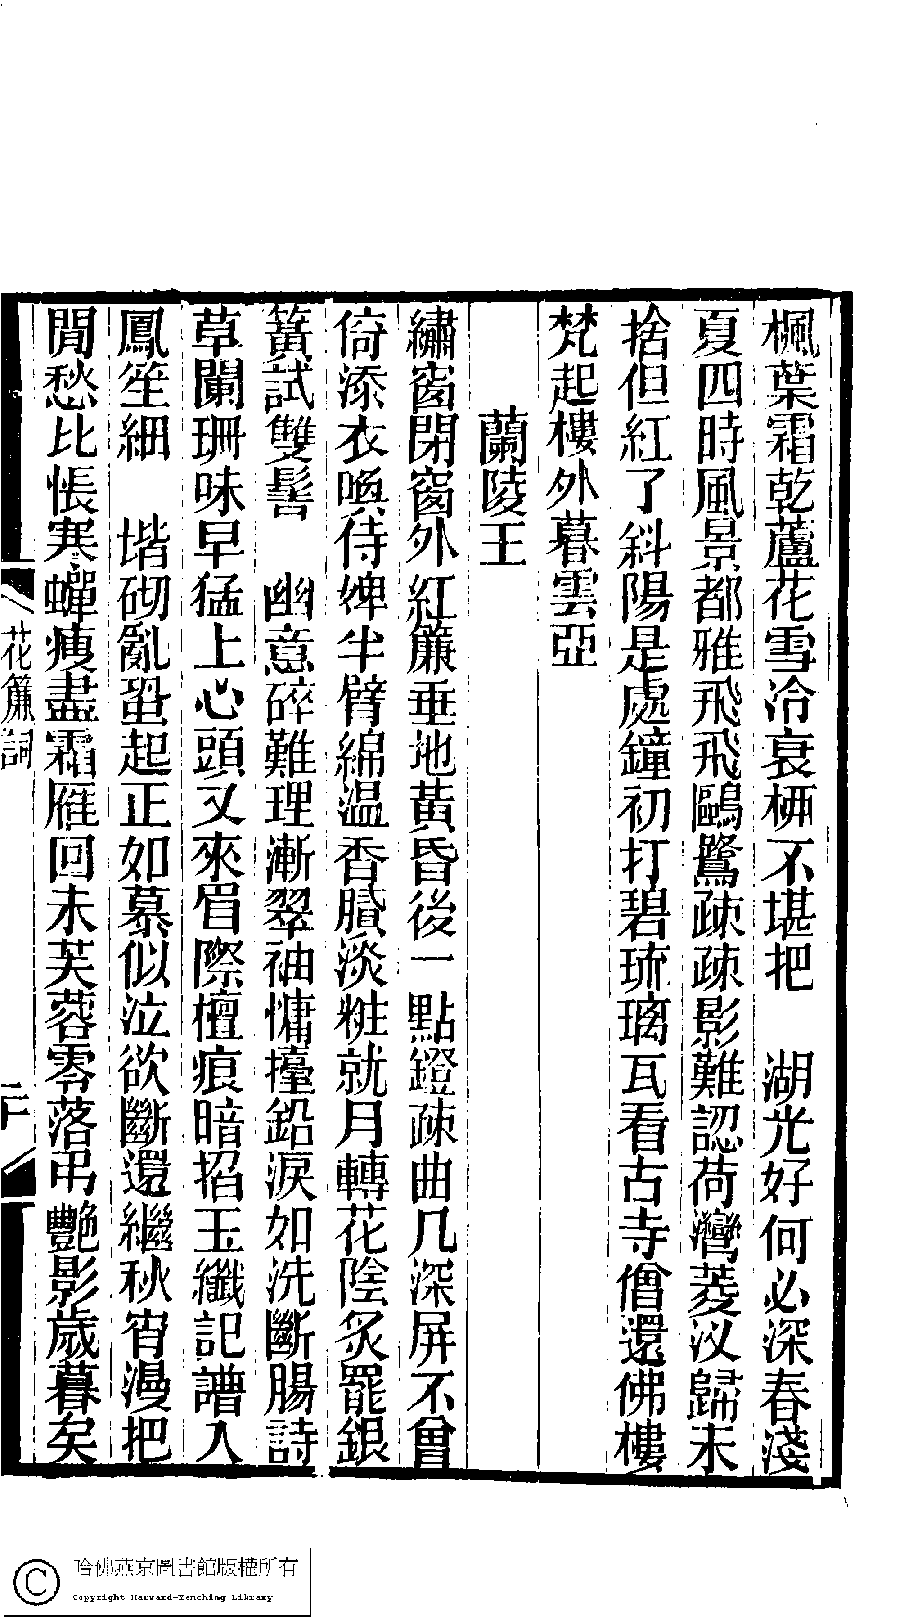 楓葉霜乾蘆花雪冷衰柳不堪把　湖光好何必深春淺
夏四時風景都雅飛飛鷗鷺疎疎影難認荷灣菱汊歸未
捨但紅了斜陽是處鐘初打碧琉璃瓦看古寺僧還佛樓
梵起樓外暮雲亞
蘭陵王
繡窗閉窗外紅簾垂地黃昏後一點鐙疎曲几深屏不曾
倚添衣喚侍婢半臂綿温香膩淡粧就月轉花陰炙罷銀
簧試雙髻　幽意碎難理漸翠袖慵擡鉛淚如洗斷腸詩
草闌珊味早猛上心頭又來眉際檀痕暗掐玉纖記譜入
鳳笙細　堦砌亂蛩起正如慕似泣欲斷還繼秋宵漫把
閒愁比悵寒蟬瘦盡霜雁回未芙蓉零落弔艷影歲暮矣
花簾詞
二十
哈佛燕京圖書館版權所有
Copyright Harvard-Yenching Library